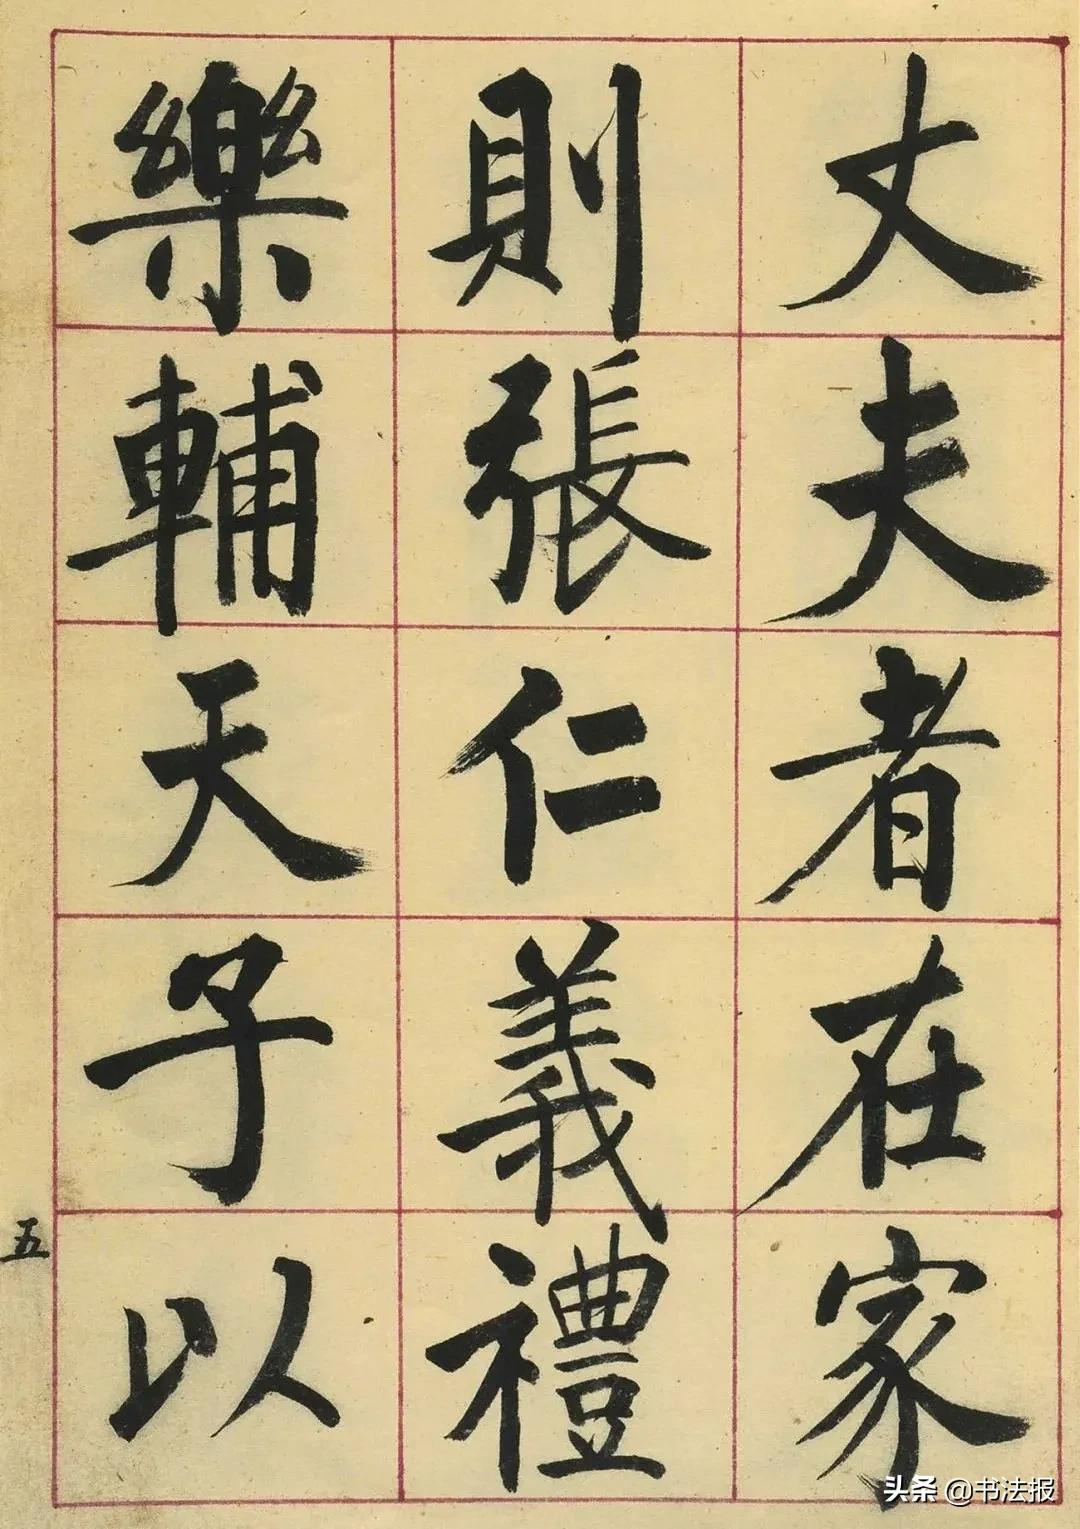 丈夫者在家
則張仁義禮
樂輔天子以
五
头条 @书法报